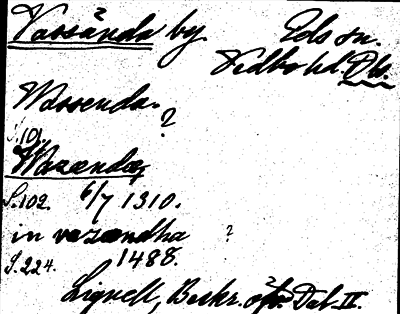 Vassända by Eds sn.
Vedbo hd. Dls.
Wassenda.
?
S. 101.
Wazændæ
S. 102. 6/7 1310.
in vazændha ?
S. 224. 1488.
Lignell, Beskr. Dal. II.